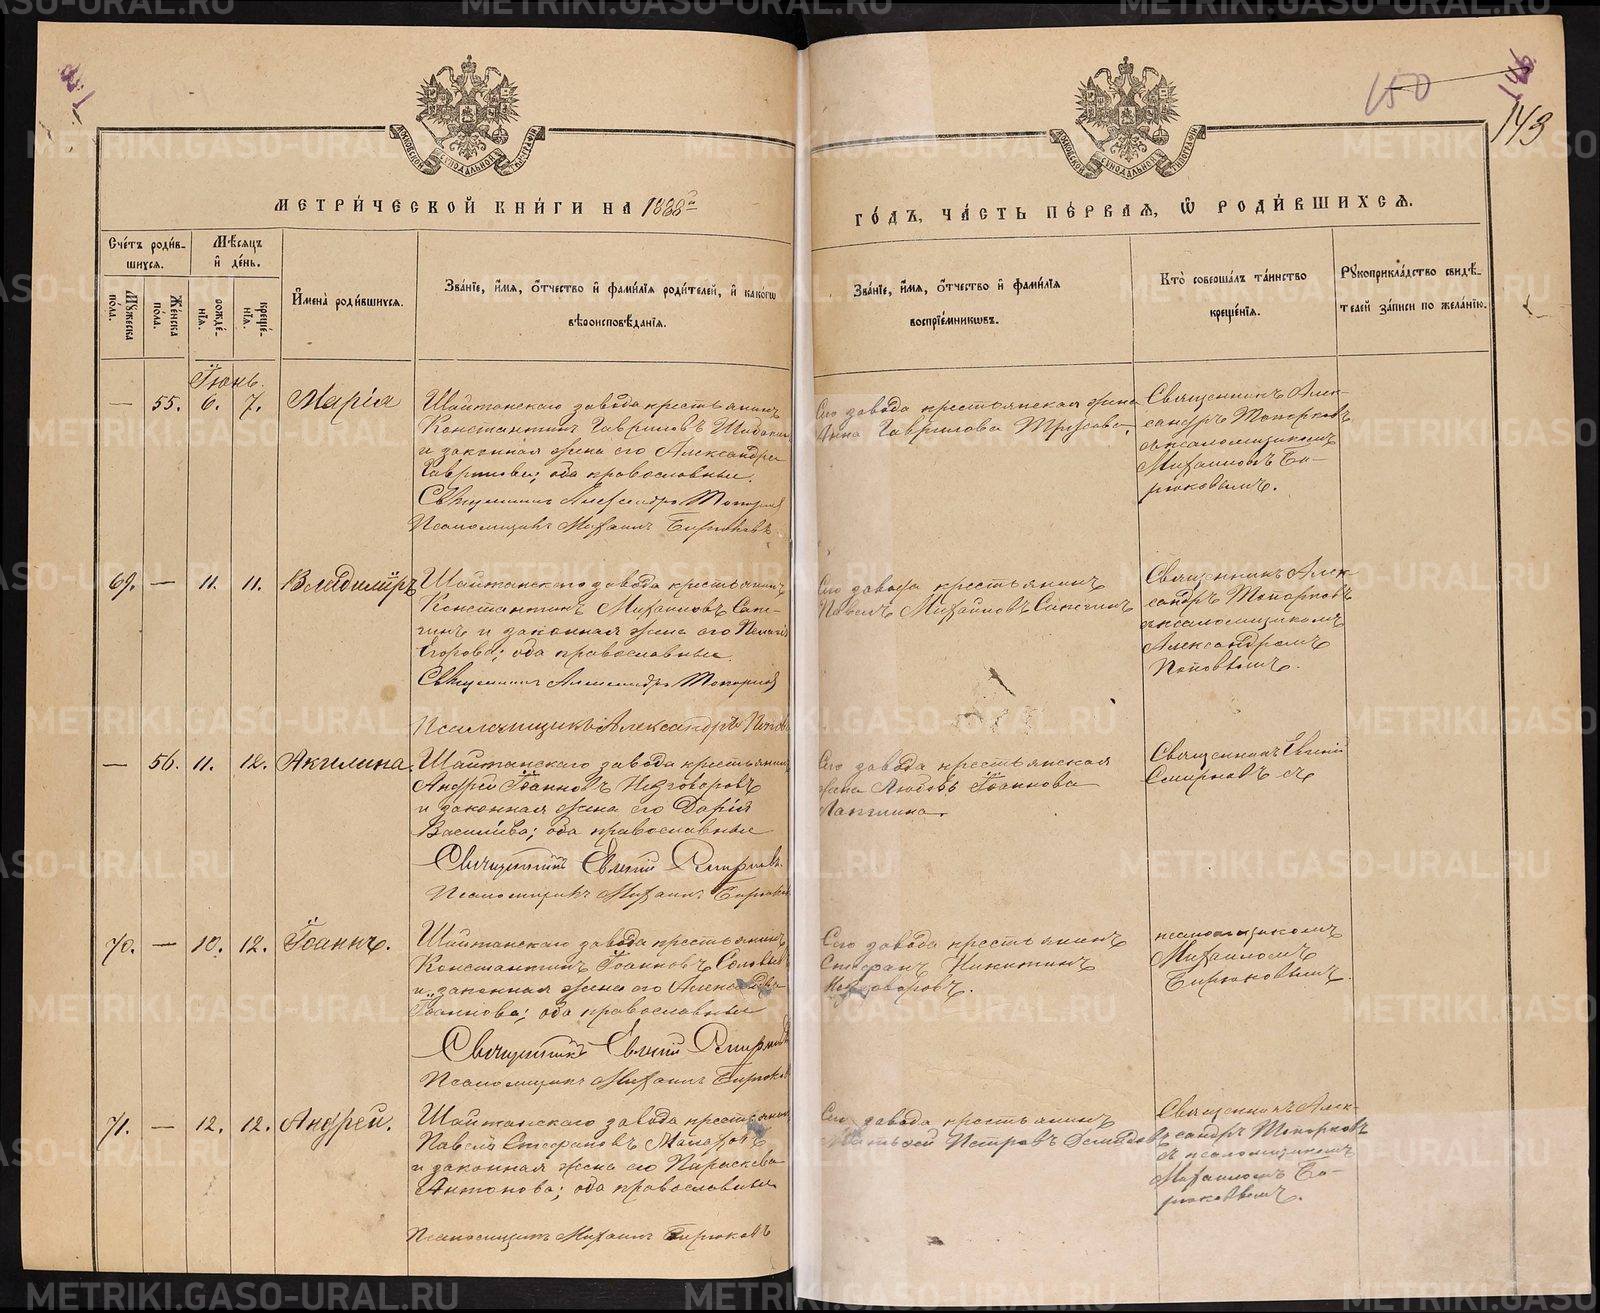 150
143
МЕТРИ́ЧЕСКОЙ КНИ́ГИ НА 1888й
ГО́ДЪ, ЧА́СТЬ ПЕ́РВАЯ, Ѡ РОДИ́ВШИХСЯ.
Сче́тъ роди́в-
шихся.
Му́жеска по́ла.
Же́нска по́ла.
Мѣ́сяцъ
и́ де́нь.
рожде́-
нїя.
креще́-
нїя.
И́мена̀ роди́вшихся.
Зва́нїе, и́мя, о́тчество и́ фами́лїя роди́телей, и́ како́гѡ
вѣроисповѣ́данїя.
Зва́нїе, и́мя, о́тчество и́ фами́лїя
воспрїе́мникѡвъ.
Кто̀ соверша́лъ та́инство
креще́нїя.
Рꙋкоприкла́дство свидѣ́-
телей за́писи по жела́нїю.
Іюнь.
— 55. 6. 7. Марія
Шайтанскаго завода крестьянинъ
Константинъ Гавриловъ
и законная жена его Александра
Гаврилова; оба православные.
Священникъ Александръ Топорковъ
Псаломщикъ Михаилъ Бирюковъ
Сего завода крестьянская жена
Анна Гаврилова
Священникъ Алек-
сандръ Топорковъ
съ псаломщикомъ
Михаиломъ Би-
рюковымъ.
69. — 11. 11. Владиміръ
Шайтанскаго завода крестьянинъ
Константинъ Михаиловъ Сапе-
гинъ и законная жена его
Егорова; оба православные.
Священникъ Александръ Топорковъ
Псаломщикъ Александръ Поповъ
Сего завода крестьянинъ
Павелъ Михаиловъ Сапегинъ
Священникъ Алек-
сандръ Топорковъ
съ псаломщикомъ
Александромъ
Поповымъ.
— 56. 11. 12. Акилина.
Шайтанскаго завода крестьянинъ
Андрей Іоанновъ Незговоровъ
и законная жена его Дарія
Васильева; оба православные
Священникъ Евгеній Смирновъ
Псаломщикъ Михаилъ Бирюковъ
Сего завода крестьянская
жена Любовь Іоаннова
Лапшина.
Священникъ Евгеній
Смирновъ съ
70. — 10. 12. Іоаннъ.
Шайтанскаго завода крестьянинъ
Константинъ Іоанновъ Соловьевъ
и законная жена его Александра
Іоаннова; оба православные
Священникъ Евгеній Смирновъ
Псаломщикъ Михаилъ Бирюковъ
Сего завода крестьянинъ
Стефанъ Никитинъ
Незговоровъ.
псаломщикомъ
Михаиломъ
Бирюковымъ.
71. — 12. 12. Андрей.
Шайтанскаго завода крестьянинъ
Павелъ Стефановъ Малаховъ
и законная жена его Параскева
Антонова; оба православные
Псаломщикъ Михаилъ Бирюковъ
Сего завода крестьянинъ
Матвей Петровъ Демидовъ
Священникъ Алек-
сандръ Топорковъ
съ псаломщикомъ
Михаиломъ Би-
рюковымъ.
METRIKI.GASO-URAL.RU